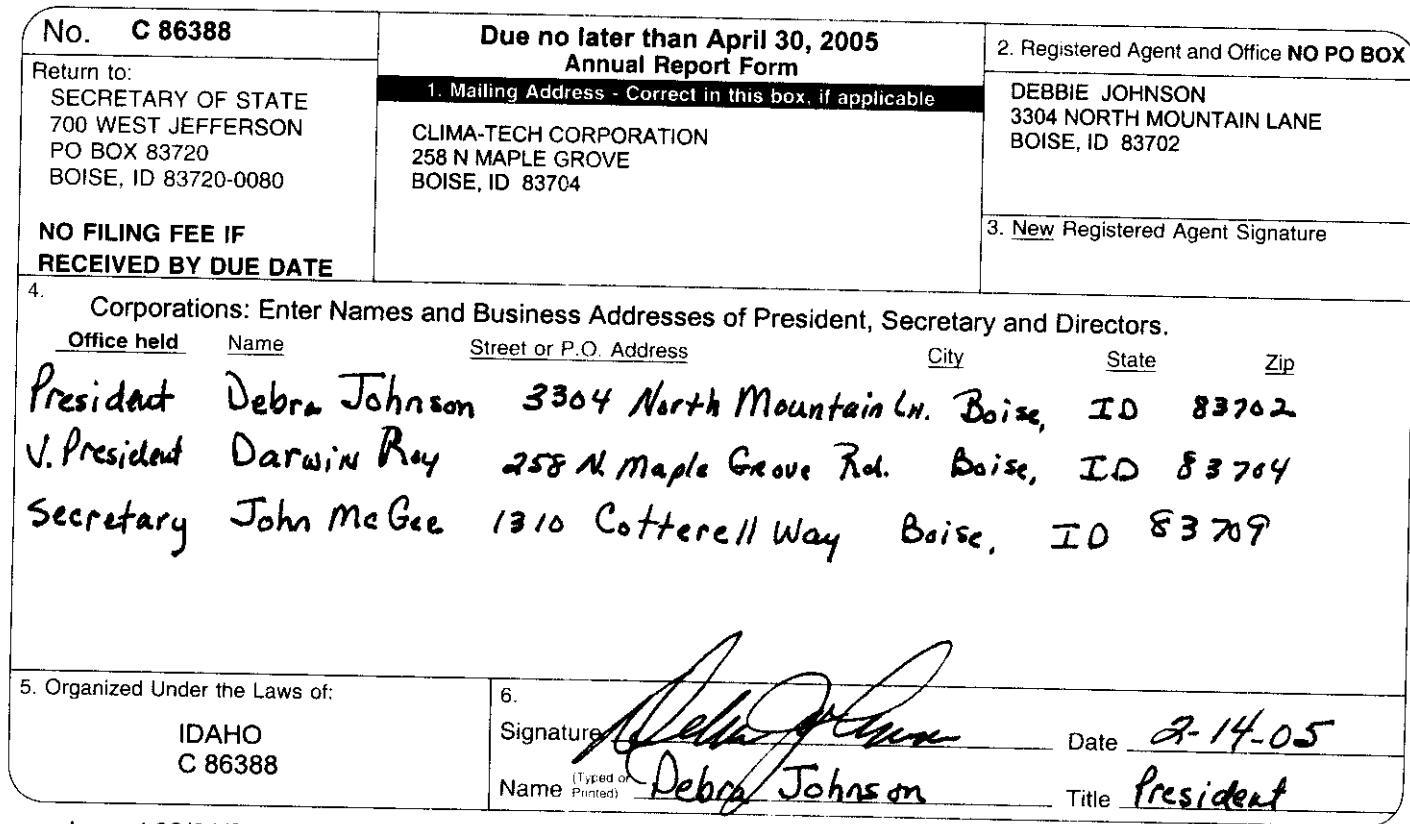 No. C 86388
Return to:
SECRETARY OF STATE
700 WEST JEFFERSON
PO BOX 83720
BOISE, ID 83720-0080
NO FILING FEE IF
RECEIVED BY DUE DATE
Due no later than April 30, 2005
Annual Report Form
1. Mailing Address - Correct in this box, if applicable
CLIMA-TECH CORPORATION
258 N MAPLE GROVE
BOISE, ID 83704
2. Registered Agent and Office NO PO BOX
DEBBIE JOHNSON
3304 NORTH MOUNTAIN LANE
BOISE, ID 83702
3. New Registered Agent Signature
4.
Corporations: Enter Names and Business Addresses of President, Secretary and Directors.
Office held Name Street or P.O. Address City State Zip
President Debra Johnson 3304 North Mountain Ln. Boise, ID 83702
V. President Darwin Roy 258 N. Maple Grove Rd. Boise, ID 83704
Secretary John McGee 1310 Cotterell Way Boise, ID 83709
5. Organized Under the Laws of:
IDAHO
C 86388
6.
Signature Debra Johnson Date 2-14-05
Name (Typed or Printed) Debra Johnson Title President